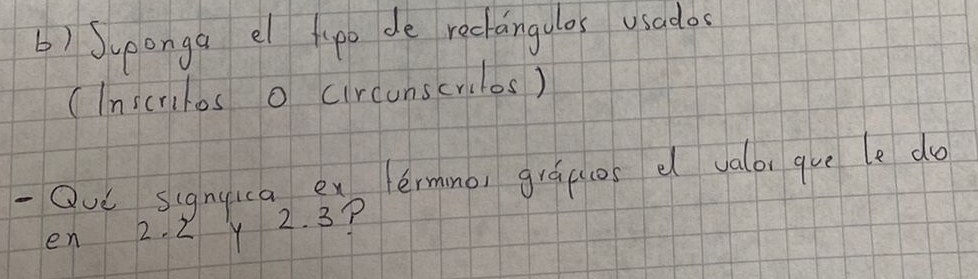 b) Suponga el tipo de rectángulos usados
(Inscritos o circunscritos)
- Qué significa en términos gráficos el valor que le dio
en 2.2 y 2.3?